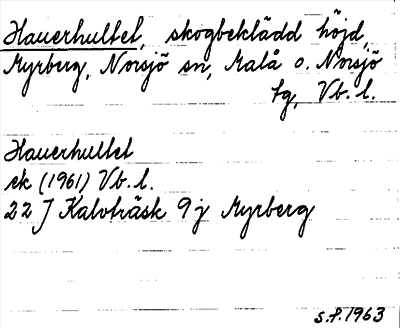 Hauerhultet, skogbeklädd höjd,
Myrberg, Norsjö sn, Malå o. Norsjö
tg, Vb. l.
Hauerhultet
ek (1961) Vb. l.
22 J Kalvträsk 9 j Myrberg
S.P. 1963